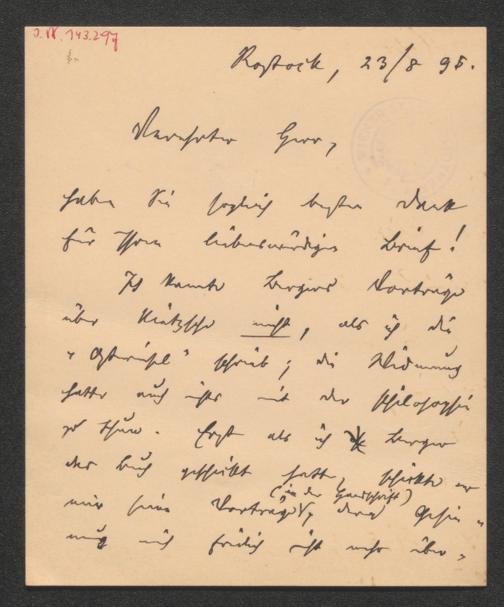 J.N. 143.297
Rostock, 23/8 95.
Verehrter Herr,
haben Sie sogleich besten Dank
für Ihren liebenswürdigen Brief!
Ich kannte Bergers Vorträge
über Nietzsche nicht, als ich die
" schrieb; die Widmung
hatte auch nichts mit der Philosophie
zu thun. Erst als ich Berger
das Buch geschickt hatte, schickte er
(in der Handschrift)
mir seine Vorträge, deren Gesin-
nung mich freilich nicht mehr über-